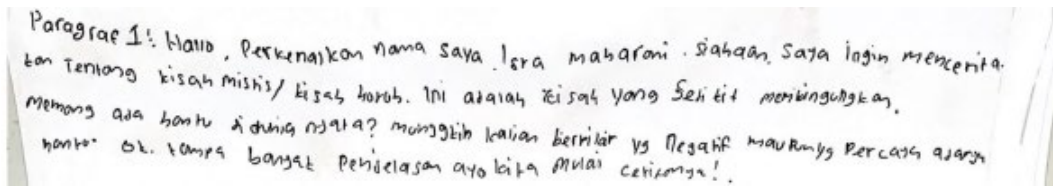 Paragraf 1: Hallo, Perkenalkan nama saya Isra maharani siahaan, saya ingin mencerita-
kan Tentang kisah mistis/ kisah horoh. ini adalah kisah yang sedikit membingungkan.
Memang ada hantu di dunia nyata? mungkin kalian berfikir yg negatif maupunyg Percaya adanya
hantu. ok. tampa banyak Penjelasan ayo kita mulai ceritanya!.